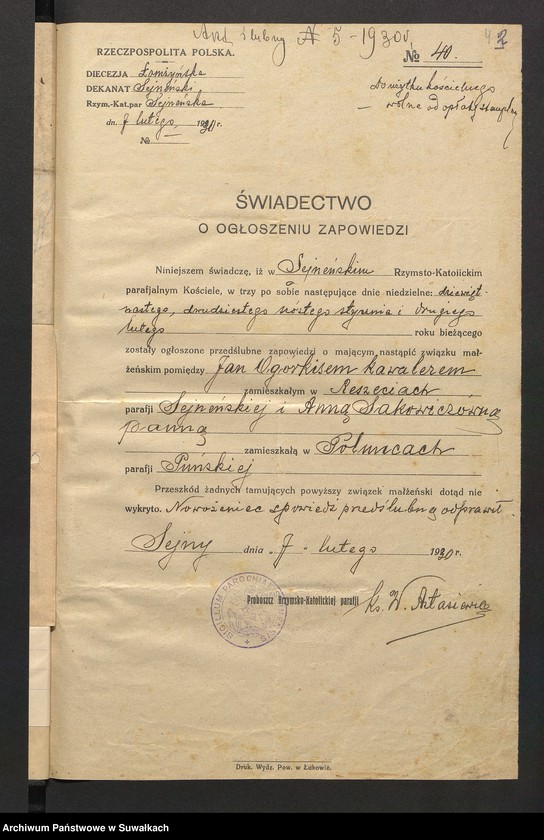 Akt ślubny № 5 - 1930
42
RZECZPOSPOLITA POLSKA.
№ 40.
DIECEZJA Łomżyńska
DEKANAT Sejneński
Rzym.-Kat.par Sejneńska
dn. 7 lutego 1930 r.
№
Do użytku kościelnego
— wolne od opłaty stempl.
ŚWIADECTWO
O OGŁOSZENIU ZAPOWIEDZI
Niniejszem świadczę, iż w Sejneńskim Rzymsto-Katolickim
parafjalnym Kościele, w trzy po sobie następujące dnie niedzielne: dziewięt-
nastego, dwudziestego szóstego stycznia i drugiego
lutego roku bieżącego
zostały ogłoszone przedślubne zapowiedzi o mającym nastąpić związku mał-
żeńskim pomiędzy Jan Ogórkisem kawalerem
zamieszkałym w Reszęciach
parafji Sejneńskiej i Anną Sakowiczówną
panną
zamieszkałą w Połuncach
parafji Puńskiej
Przeszkód żadnych tamujących powyższy związek małżeński dotąd nie
wykryto. Nowożeniec spowiedź przedślubną odprawił.
Sejny dnia 7 - lutego 1930 r.
Proboszcz Rzymsko-Katolickiej parafji
ks. W. Astasiewicz
SIGILLUM PAROCHIAE
Druk. Wydz. Pow. w Łukowie.
Archiwum Państwowe w Suwałkach